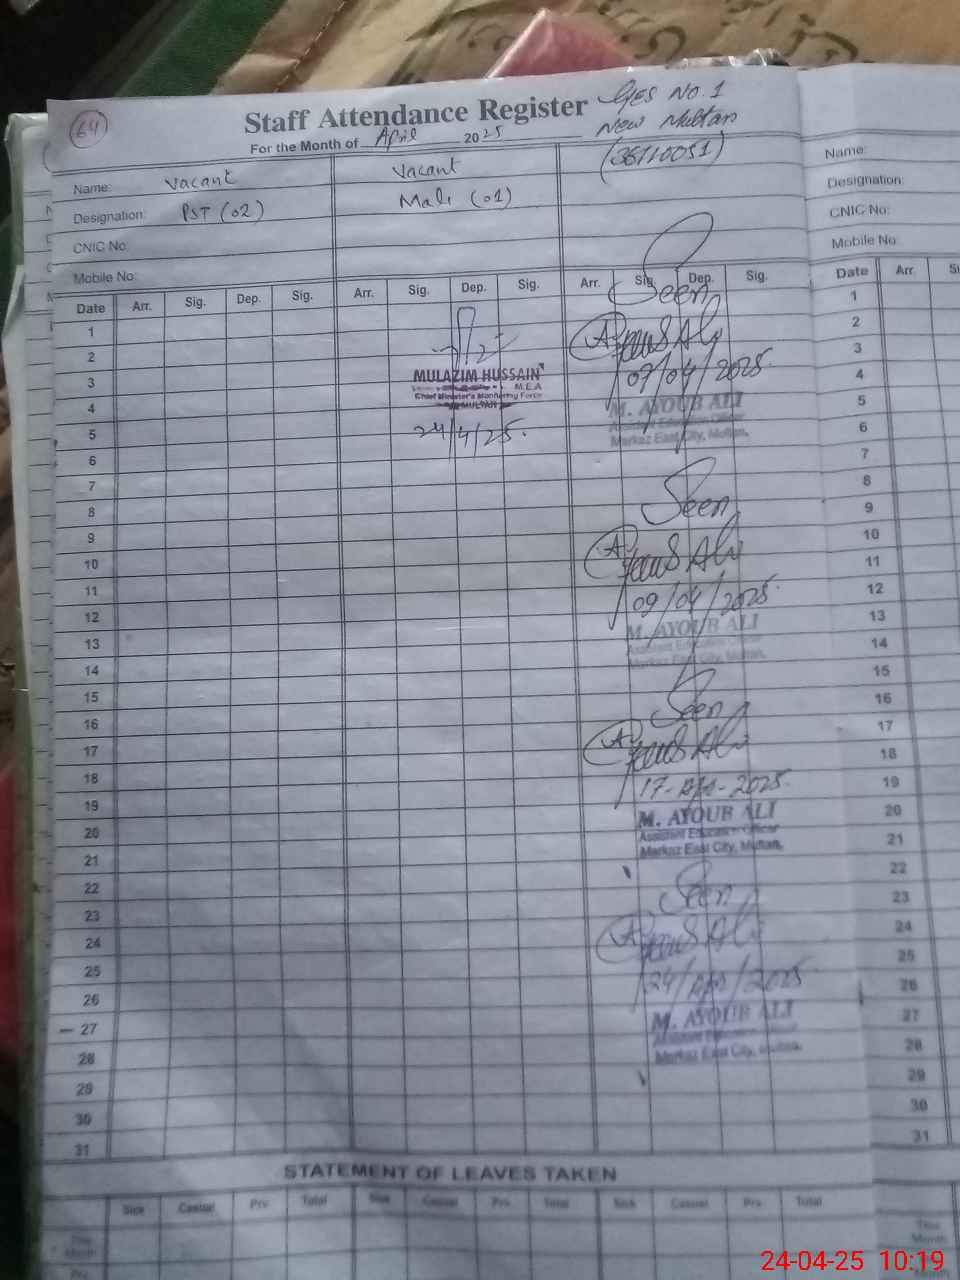 64
Staff Attendance Register
For the Month of April 2025
GES NO.1
New Multan
(36110051)
Name: Vacant
Vacant
Designation: PST (02)
Male (01)
CNIC No:
Mobile No:
Name:
Designation:
CNIC No:
Mobile No:
Date Arr. Sig. Dep. Sig. Arr. Sig. Dep. Sig. Arr. Sig. Dep. Sig. Date Arr.
1
2
3
4
5
6
7
8
9
10
11
12
13
14
15
16
17
18
19
20
21
22
23
24
25
26
27
28
29
30
31
MULAZIM HUSSAIN
M.E.A
Chief Minister's Monitoring Force
MULTAN
24/4/25.
Seen
07/04/2025
M. AYOUB ALI
Assistant Education Officer
Markaz East City, Multan.
Seen
09/04/2025
M. AYOUB ALI
Assistant Education Officer
Markaz East City, Multan.
Seen
17-Apr-2025.
M. AYOUB ALI
Assistant Education Officer
Markaz East City, Multan.
Seen
24/Apr/2025
M. AYOUB ALI
Markaz East City,
1
2
3
4
5
6
7
8
9
10
11
12
13
14
15
16
17
18
19
20
21
22
23
24
25
26
27
28
29
30
31
STATEMENT OF LEAVES TAKEN
Sick Casual Prv. Total Sick Casual Prv. Total Sick Casual Prv. Total
This Month
This Month
24-04-25 10:19